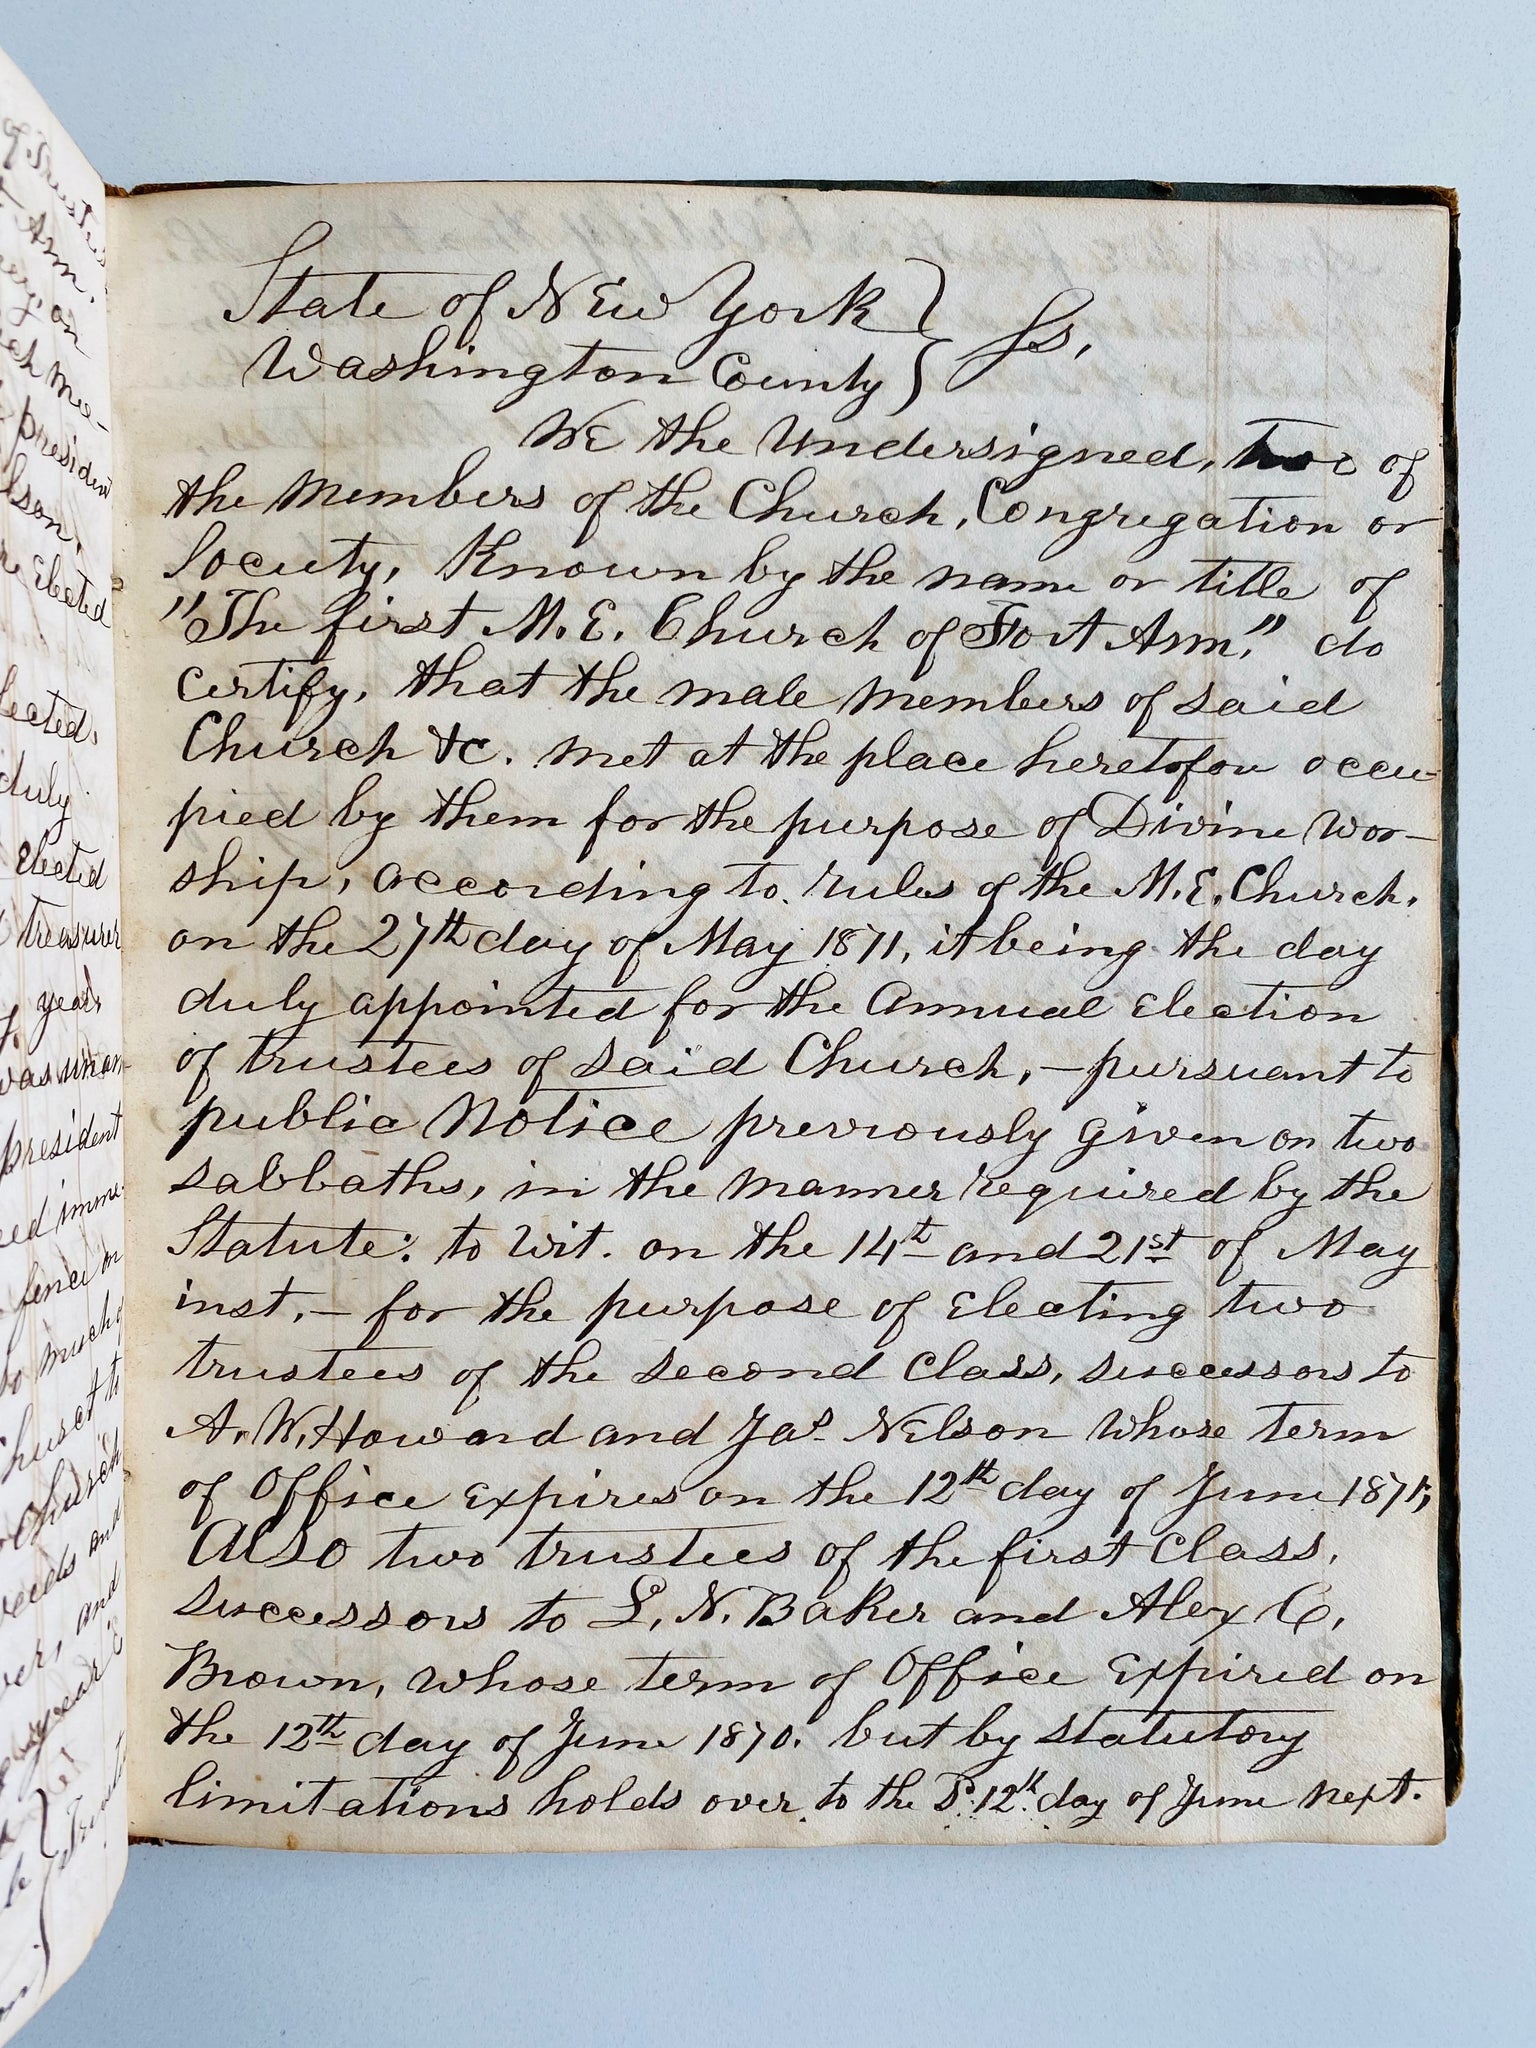 State of New York }
Washington County } Ss,
We the Undersigned, two of
the Members of the Church, Congregation or
Society, Known by the name or title of
"The first M. E. Church of Fort Ann," do
certify, that the male members of said
Church &c. met at the place heretofore occu-
pied by them for the purpose of Divine Wor-
ship, according to rules of the M. E. Church,
on the 27th day of May 1871, it being the day
duly appointed for the Annual Election
of trustees of said Church, - pursuant to
public Notice previously given on two
sabbaths, in the manner required by the
Statute: to wit. on the 14th and 21st of May
inst, - for the purpose of Electing two
trustees of the second Class, successors to
A. W. Howard and Jas Nelson whose term
of Office Expires on the 12th day of June 1871;
Also two trustees of the first Class,
successors to L. N. Baker and Alex C,
Brown, whose term of Office Expired on
the 12th day of June 1870. but by statutory
limitations holds over to the 12th day of June next.
president
Elected
lected,
duly
elected
treasurer
years
president
fence on
much of
to
Church
and
and